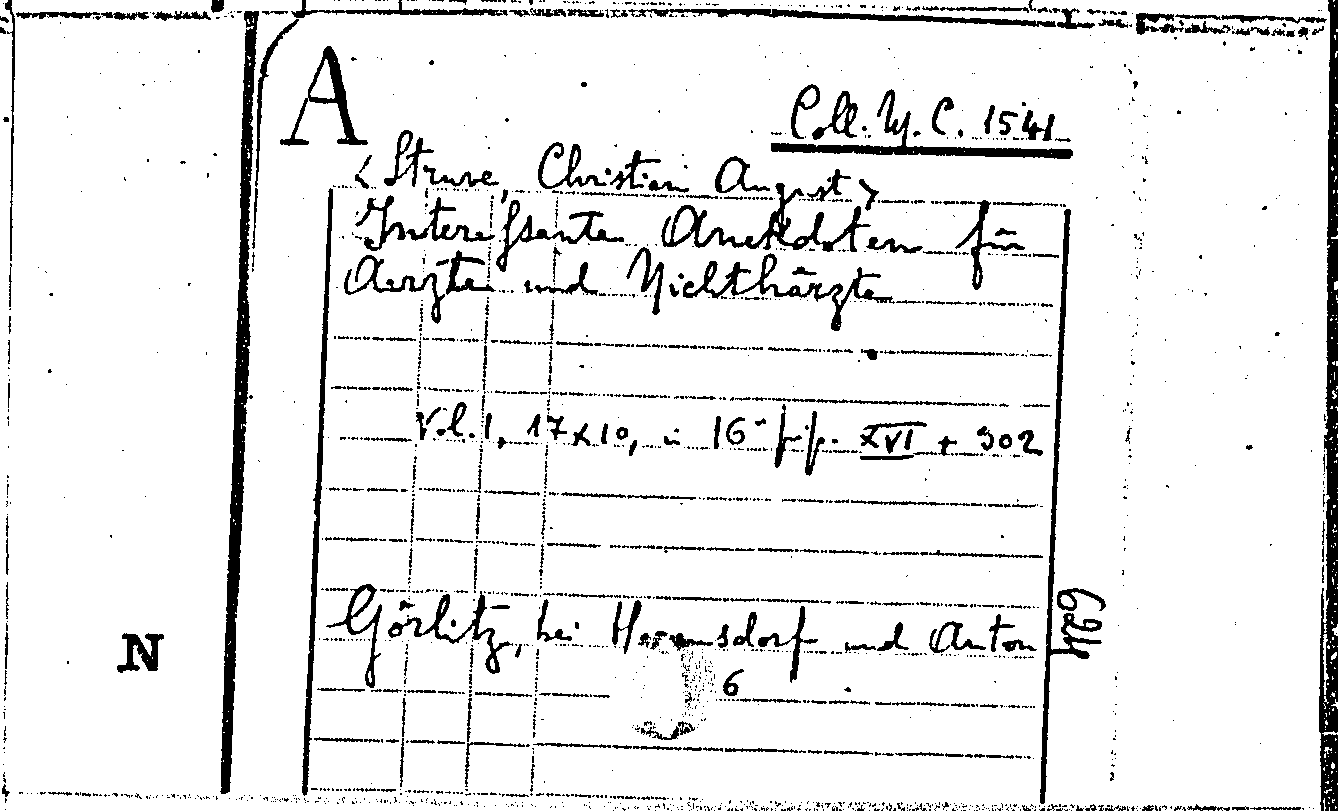 A
Coll. M. C. 1541
<Struve, Christian August>
Interessante Anekdoten für
Aerzte und Nichthärzte
Vol. 1, 17x10, in 16° pp. XVI + 302
Görlitz, bei Hermsdorf und Anton
6
624
N